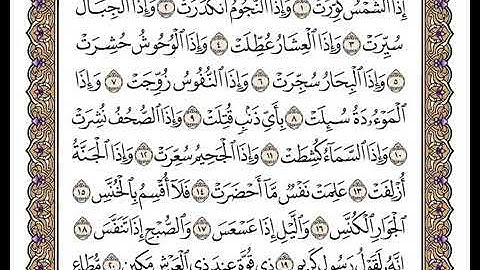 إِذَا ٱلشَّمْسُ كُوِّرَتْ ١ وَإِذَا ٱلنُّجُومُ ٱنكَدَرَتْ ٢ وَإِذَا ٱلْجِبَالُ
سُيِّرَتْ ٣ وَإِذَا ٱلْعِشَارُ عُطِّلَتْ ٤ وَإِذَا ٱلْوُحُوشُ حُشِرَتْ
٥ وَإِذَا ٱلْبِحَارُ سُجِّرَتْ ٦ وَإِذَا ٱلنُّفُوسُ زُوِّجَتْ ٧ وَإِذَا
ٱلْمَوْءُۥدَةُ سُئِلَتْ ٨ بِأَيِّ ذَنۢبٍ قُتِلَتْ ٩ وَإِذَا ٱلصُّحُفُ نُشِرَتْ
١٠ وَإِذَا ٱلسَّمَآءُ كُشِطَتْ ١١ وَإِذَا ٱلْجَحِيمُ سُعِّرَتْ ١٢ وَإِذَا ٱلْجَنَّةُ
أُزْلِفَتْ ١٣ عَلِمَتْ نَفْسٌ مَّآ أَحْضَرَتْ ١٤ فَلَآ أُقْسِمُ بِٱلْخُنَّسِ ١٥
ٱلْجَوَارِ ٱلْكُنَّسِ ١٦ وَٱلَّيْلِ إِذَا عَسْعَسَ ١٧ وَٱلصُّبْحِ إِذَا تَنَفَّسَ ١٨
إِنَّهُۥ لَقَوْلُ رَسُولٍ كَرِيمٍ ١٩ ذِي قُوَّةٍ عِندَ ذِي ٱلْعَرْشِ مَكِينٍ ٢٠ مُّطَاعٍ